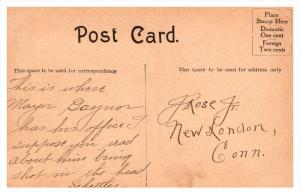 Post Card.
Place
Stamp Here
Domestic
One cent
Foreign
Two cents
This space to be used for correspondence
This space to be used for address only
This is where
Mayor Gaynor
has his office I
suppose you read
about him being
shot in the head
J Rose Jr.
New London,
Conn.